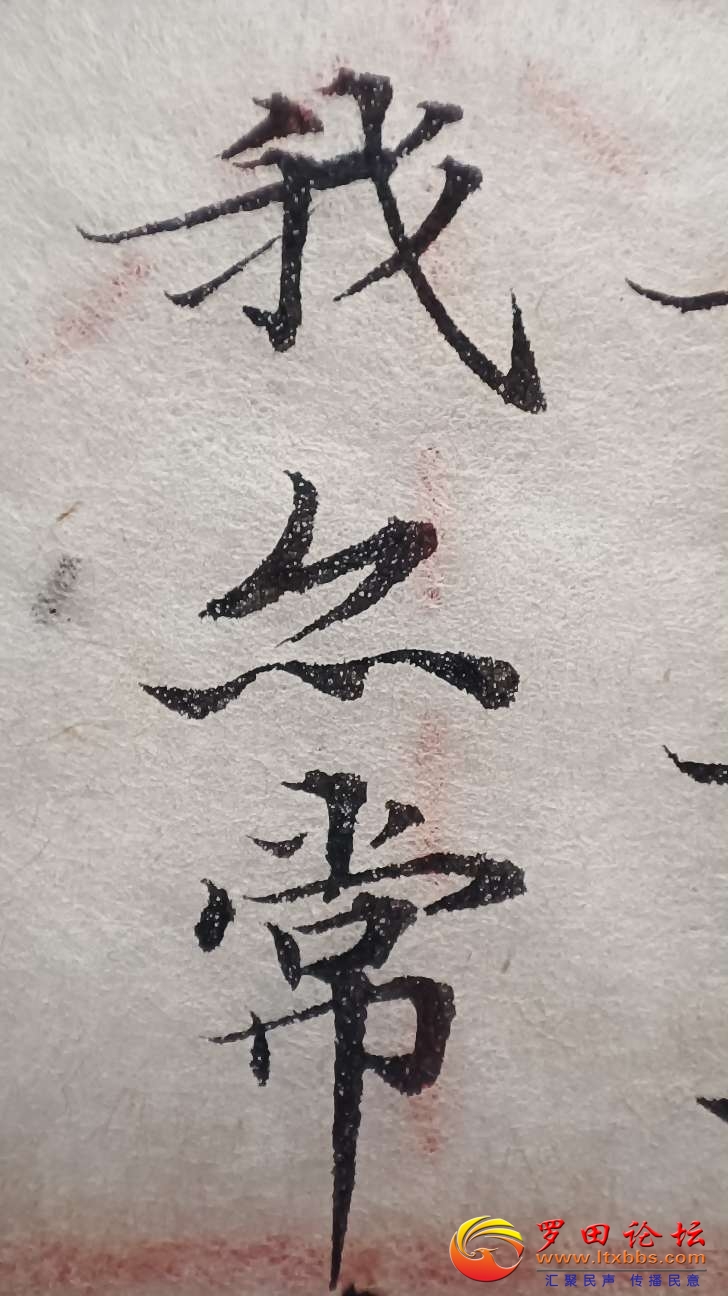 我常
罗田论坛
www.ltxbbs.com
汇聚民声 传播民意